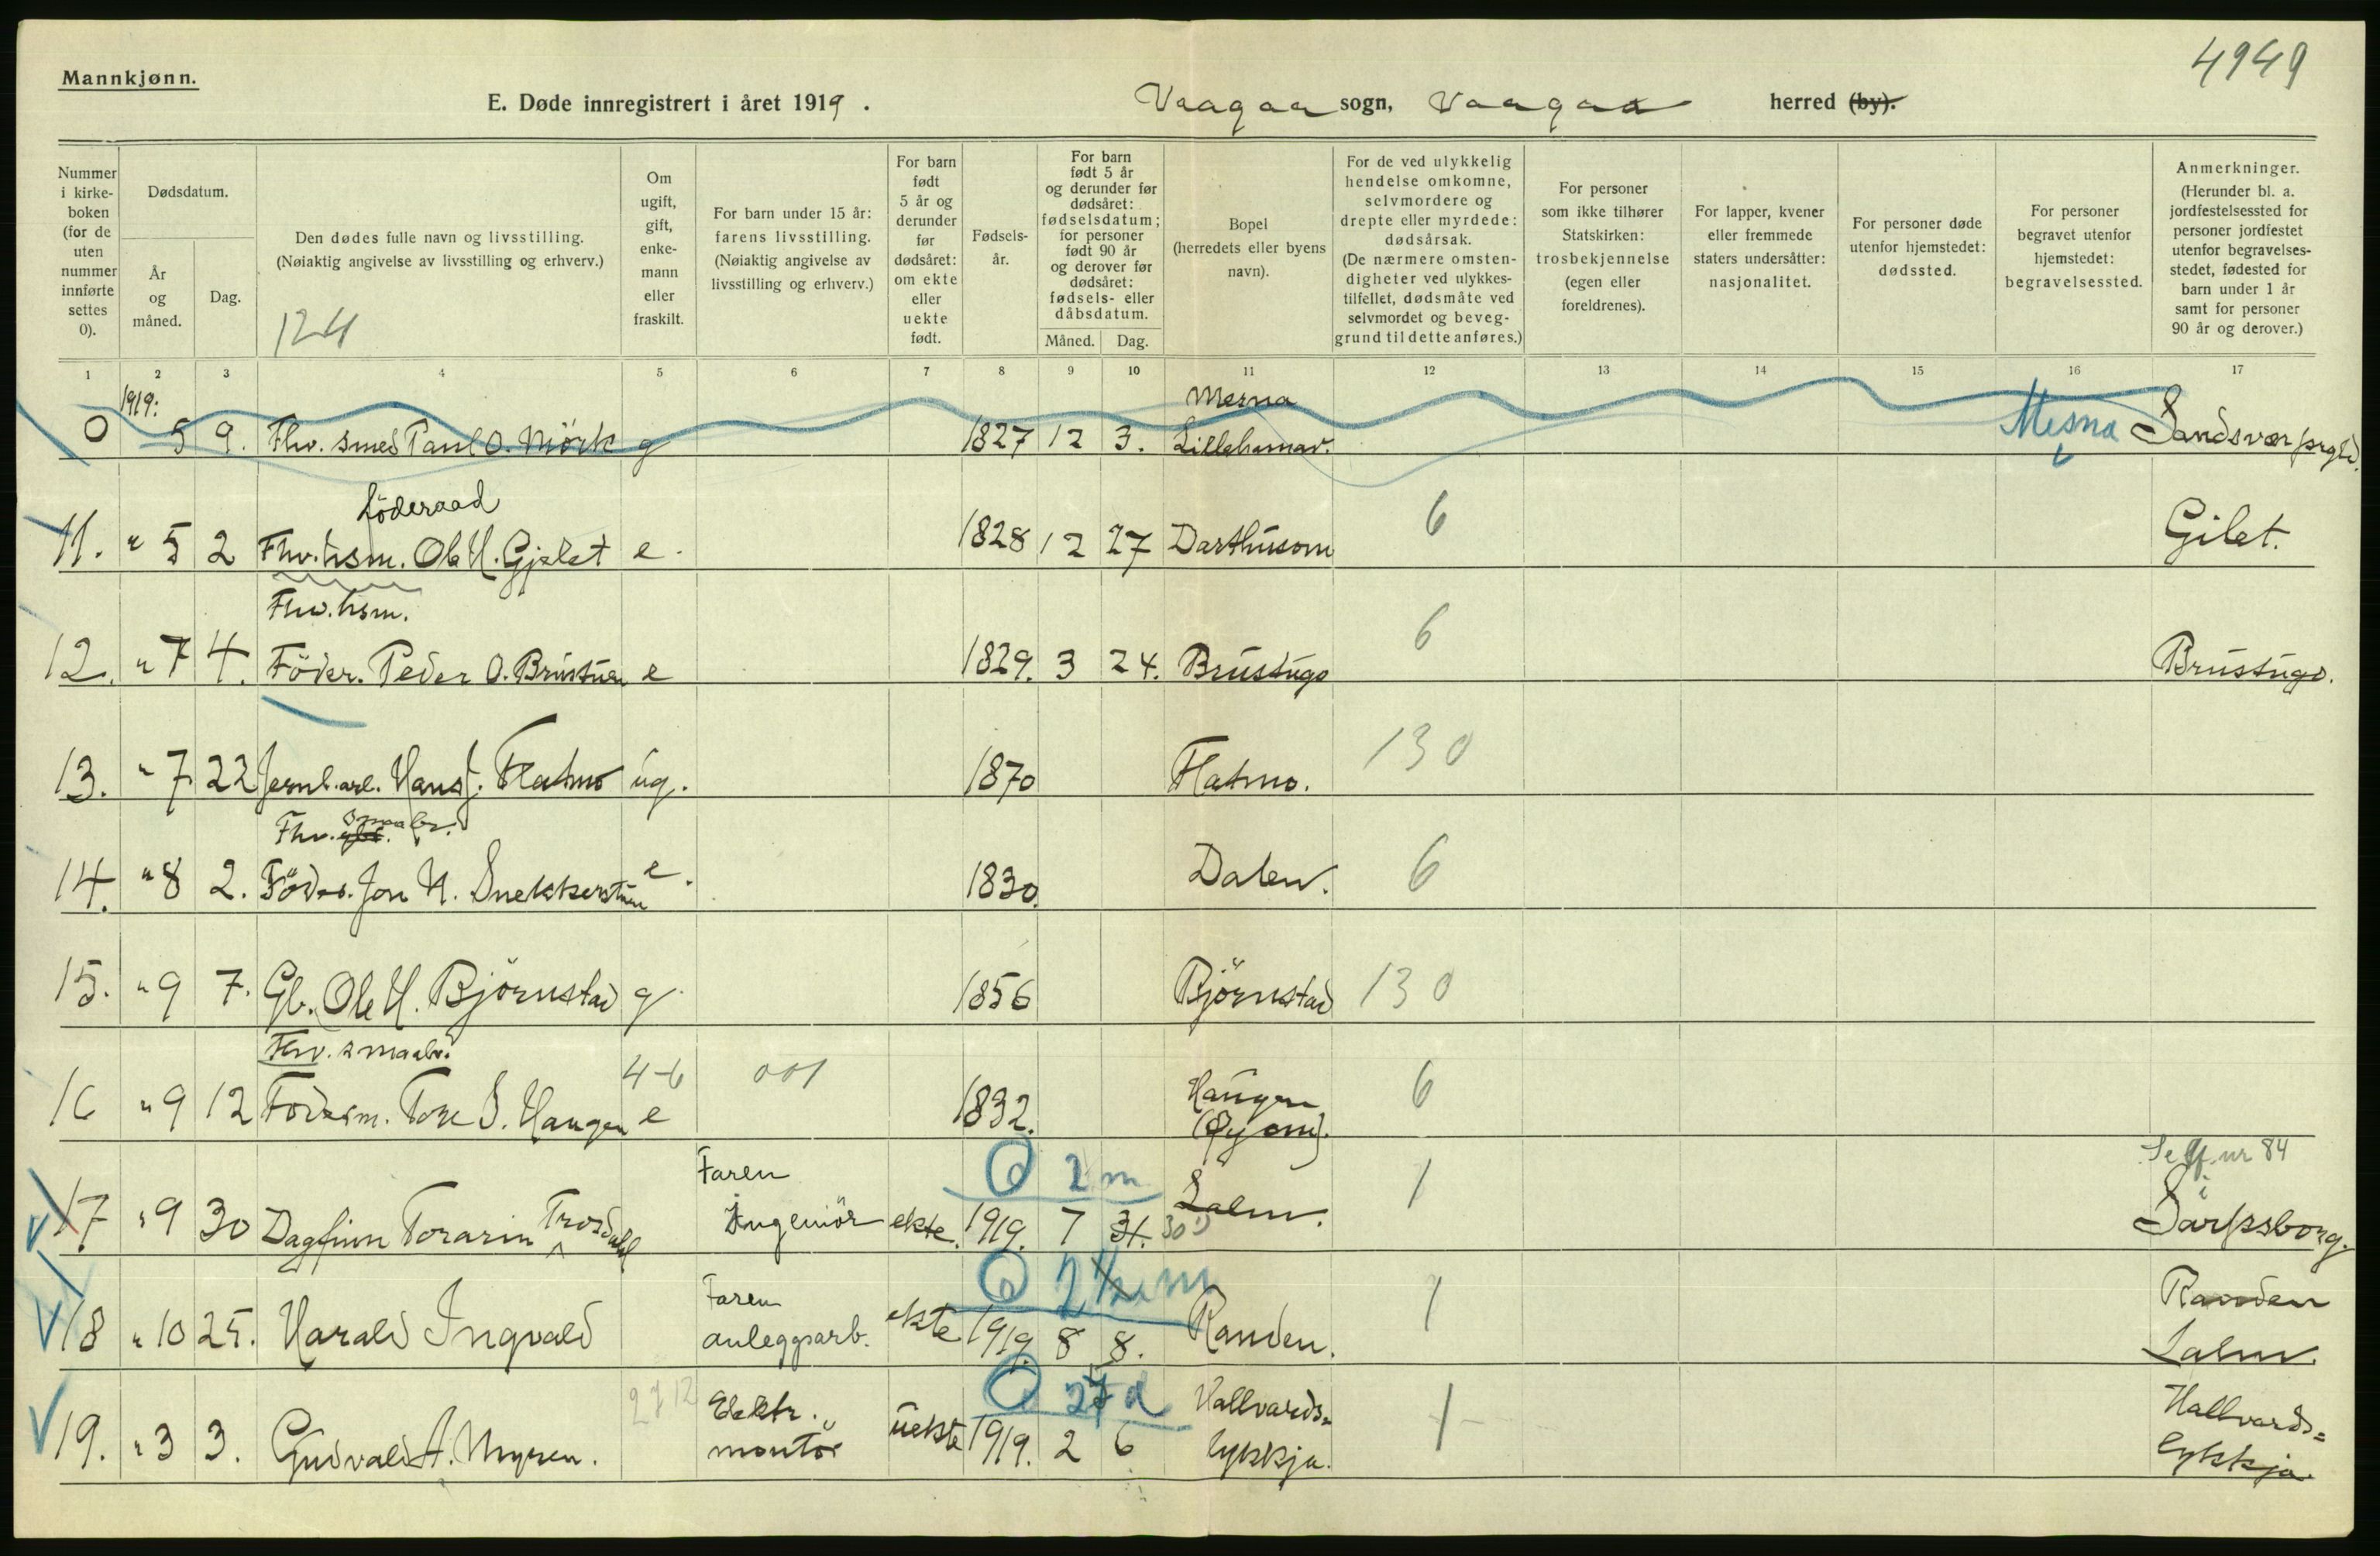 4949
Mannkjønn.
E. Døde innregistrert i året 1919. Vaagaa sogn, Vaagaa herred (by).
Nummer i kirkeboken (for de uten nummer innførte settes 0).
Dødsdatum.
År og måned.
Dag.
Den dødes fulle navn og livsstilling.
(Nøiaktig angivelse av livsstilling og erhverv.)
124
Om ugift, gift, enkemann eller fraskilt.
For barn under 15 år: farens livsstilling.
(Nøiaktig angivelse av livsstilling og erhverv.)
For barn født 5 år og derunder før dødsåret: om ekte eller uekte født.
Fødselsår.
For barn født 5 år og derunder før dødsåret: fødselsdatum; for personer født 90 år og derover før dødsåret: fødsels- eller dåbsdatum.
Måned. Dag.
Bopel (herredets eller byens navn).
For de ved ulykkelig hendelse omkomne, selvmordere og drepte eller myrdede: dødsårsak.
(De nærmere omstendigheter ved ulykkestilfellet, dødsmåte ved selvmordet og beveggrund til dette anføres.)
For personer som ikke tilhører Statskirken: trosbekjennelse (egen eller foreldrenes).
For lapper, kvener eller fremmede staters undersåtter: nasjonalitet.
For personer døde utenfor hjemstedet: dødssted.
For personer begravet utenfor hjemstedet: begravelsessted.
Anmerkninger.
(Herunder bl. a. jordfestelsessted for personer jordfestet utenfor begravelsesstedet, fødested for barn under 1 år samt for personer 90 år og derover.)
1 2 3 4 5 6 7 8 9 10 11 12 13 14 15 16 17
1919: Mesna
0 5 9. Fhv. smed Paul O. Mörk g 1827 12 3. Lillehamar. Mesna Sandsvær prgld.
föderaad
11. " 5 2 Fhv. hsm. Ole H. Gjelet e. 1828 12 27 Darthusom 6 Gilet.
Fhv. hsm.
12. " 7 4. Föder. Peder O. Brustuen e 1829. 3 24. Brustugo 6 Brustugo.
13. " 7 22 Jernb.arb. Hans J. Flatmo ug. 1870 Flatmo. 130
Fhv. smaabr.
14. " 8 2. Föder. Jon N. Snekkerstuen e. 1830. Dalen. 6
15. " 9 7. Gb. Ole H. Björnstad g. 1856 Björnstad 130
Fhv. smaabr.
4-6 001
16 " 9 12 Födesm. Tore S. Haugen e 1832. Haugen 6
(Øyom).
Faren 0 2 m Se nr 84
17 " 9 30 Dagfinn Torarin Trosdahl Ingeniör ekte. 1919. 7 31. 30 Lalm. 1 i Sarpsborg.
0 2 m
Faren Randen
18 " 10 25. Harald Ingvald anleggsarb. ekte 1919. 8 8. Randen. 1 Lalm.
0 27 d
2712 Elektr. Hallvards= Hallvards=
19. " 3 3. Gudvald A. Myren. montör uekte 1919. 2 6 lykkja. 1 lykkja.